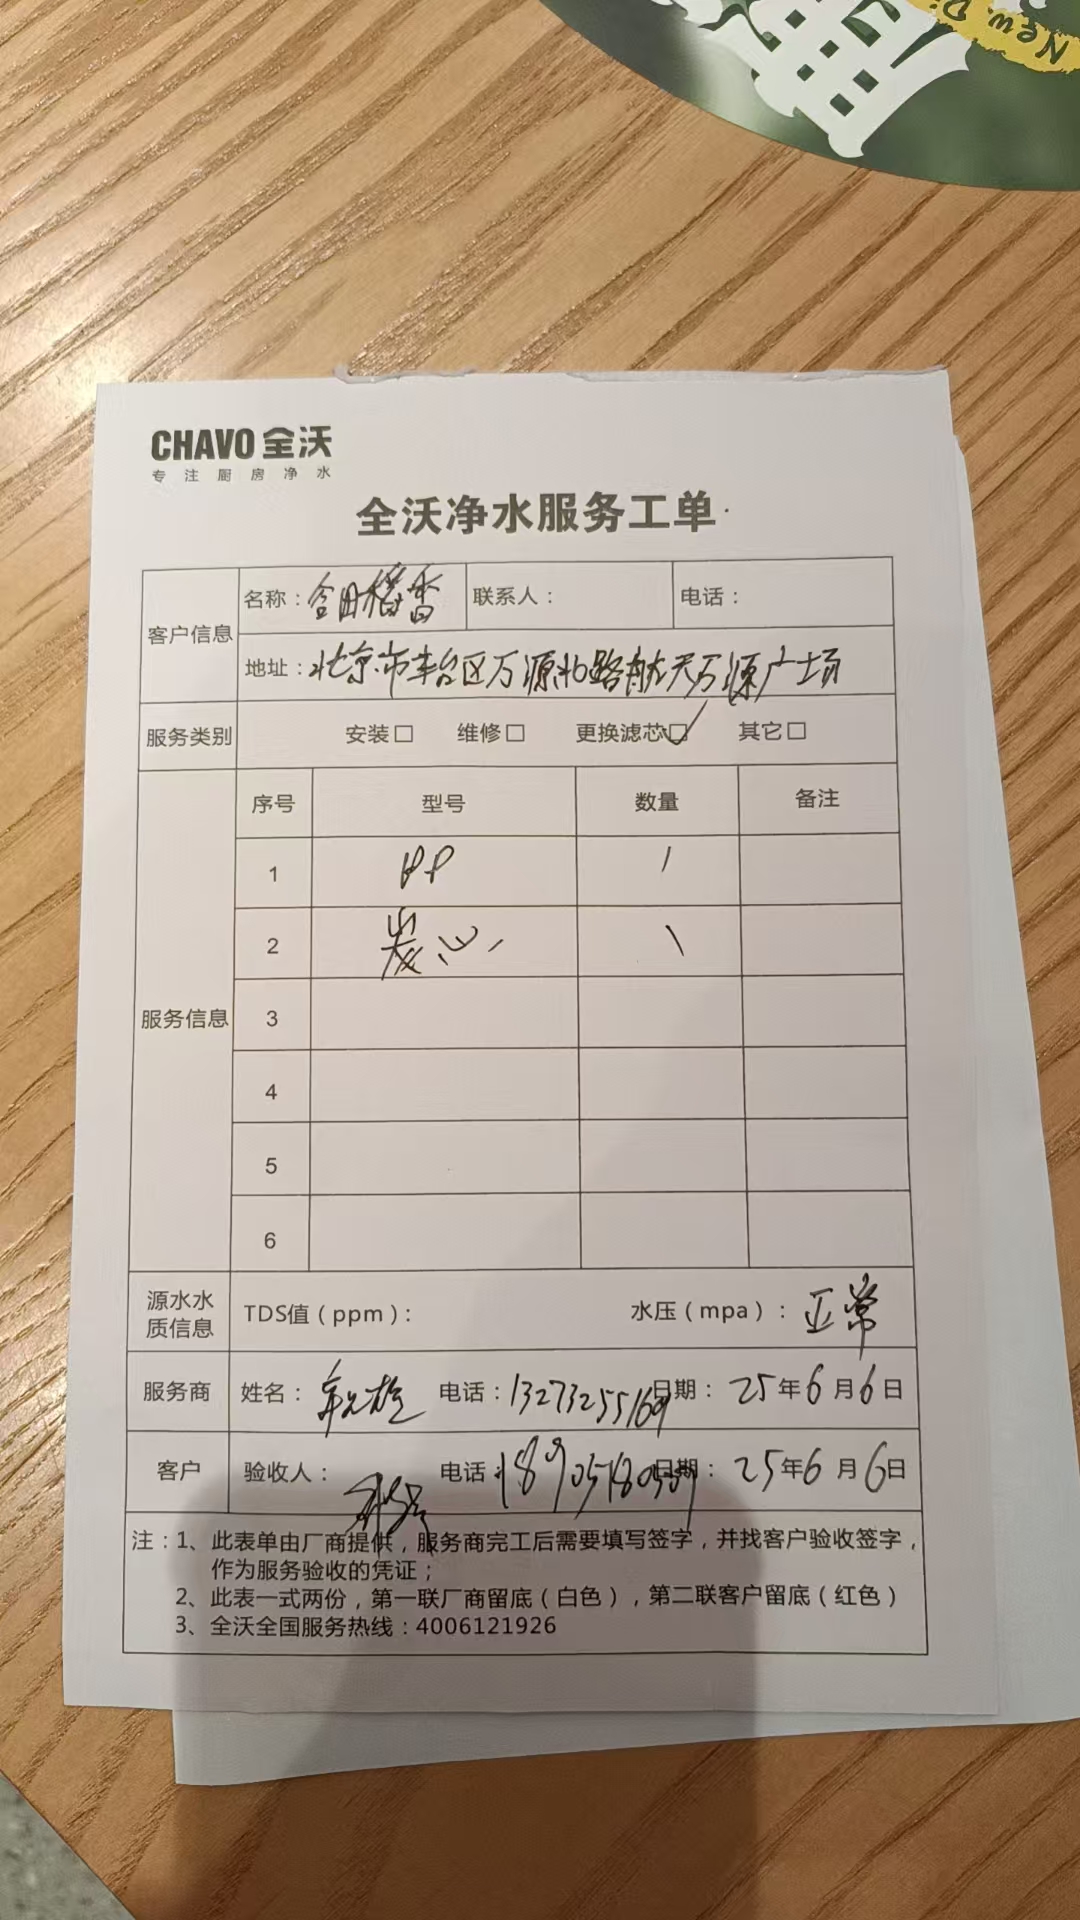 New Di
CHAVO 全沃
专注厨房净水
全沃净水服务工单
客户信息 名称：田稻香 联系人： 电话：
地址：北京市丰台区万源北路航天万源广场
服务类别 安装□ 维修□ 更换滤芯☑ 其它□
服务信息 序号 型号 数量 备注
1 PP 1
2 炭心 1
3
4
5
6
源水水质信息 TDS值（ppm）： 水压（mpa）：正常
服务商 姓名： 电话：13273255169 日期：25年6月6日
客户 验收人： 电话： 日期：25年6月6日
注：1、此表单由厂商提供，服务商完工后需要填写签字，并找客户验收签字，
作为服务验收的凭证；
2、此表一式两份，第一联厂商留底（白色），第二联客户留底（红色）
3、全沃全国服务热线：4006121926